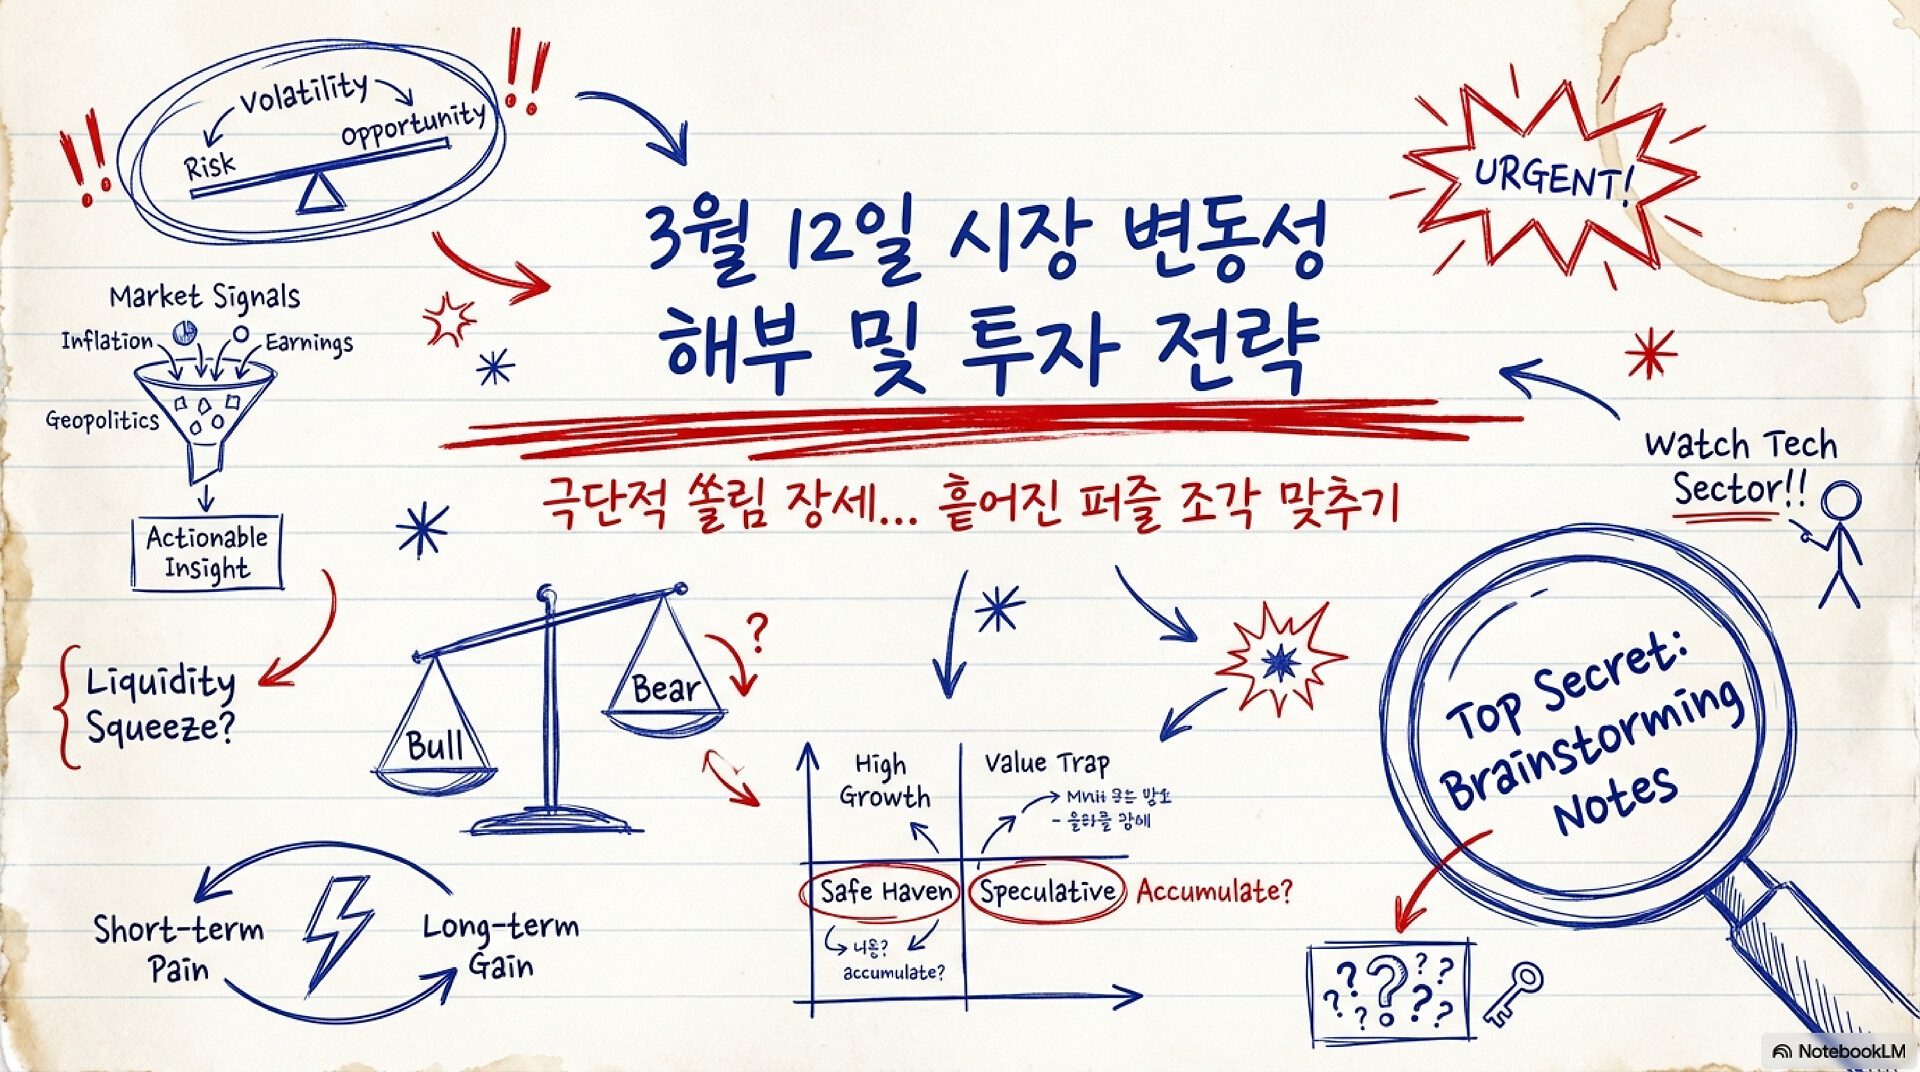 Volatility
Risk
Opportunity
!!
!!
3월 12일 시장 변동성
해부 및 투자 전략
극단적 쏠림 장세... 흩어진 퍼즐 조각 맞추기
URGENT!
Market Signals
Inflation
Earnings
Geopolitics
Actionable
Insight
Liquidity
Squeeze?
Bull
Bear
?
Short-term
Pain
Long-term
Gain
High
Growth
Value Trap
Safe Haven
Speculative
Accumulate?
accumulate?
Watch Tech
Sector!!
Top Secret:
Brainstorming
Notes
? ? ? ?
? ? ? ? ?
NotebookLM